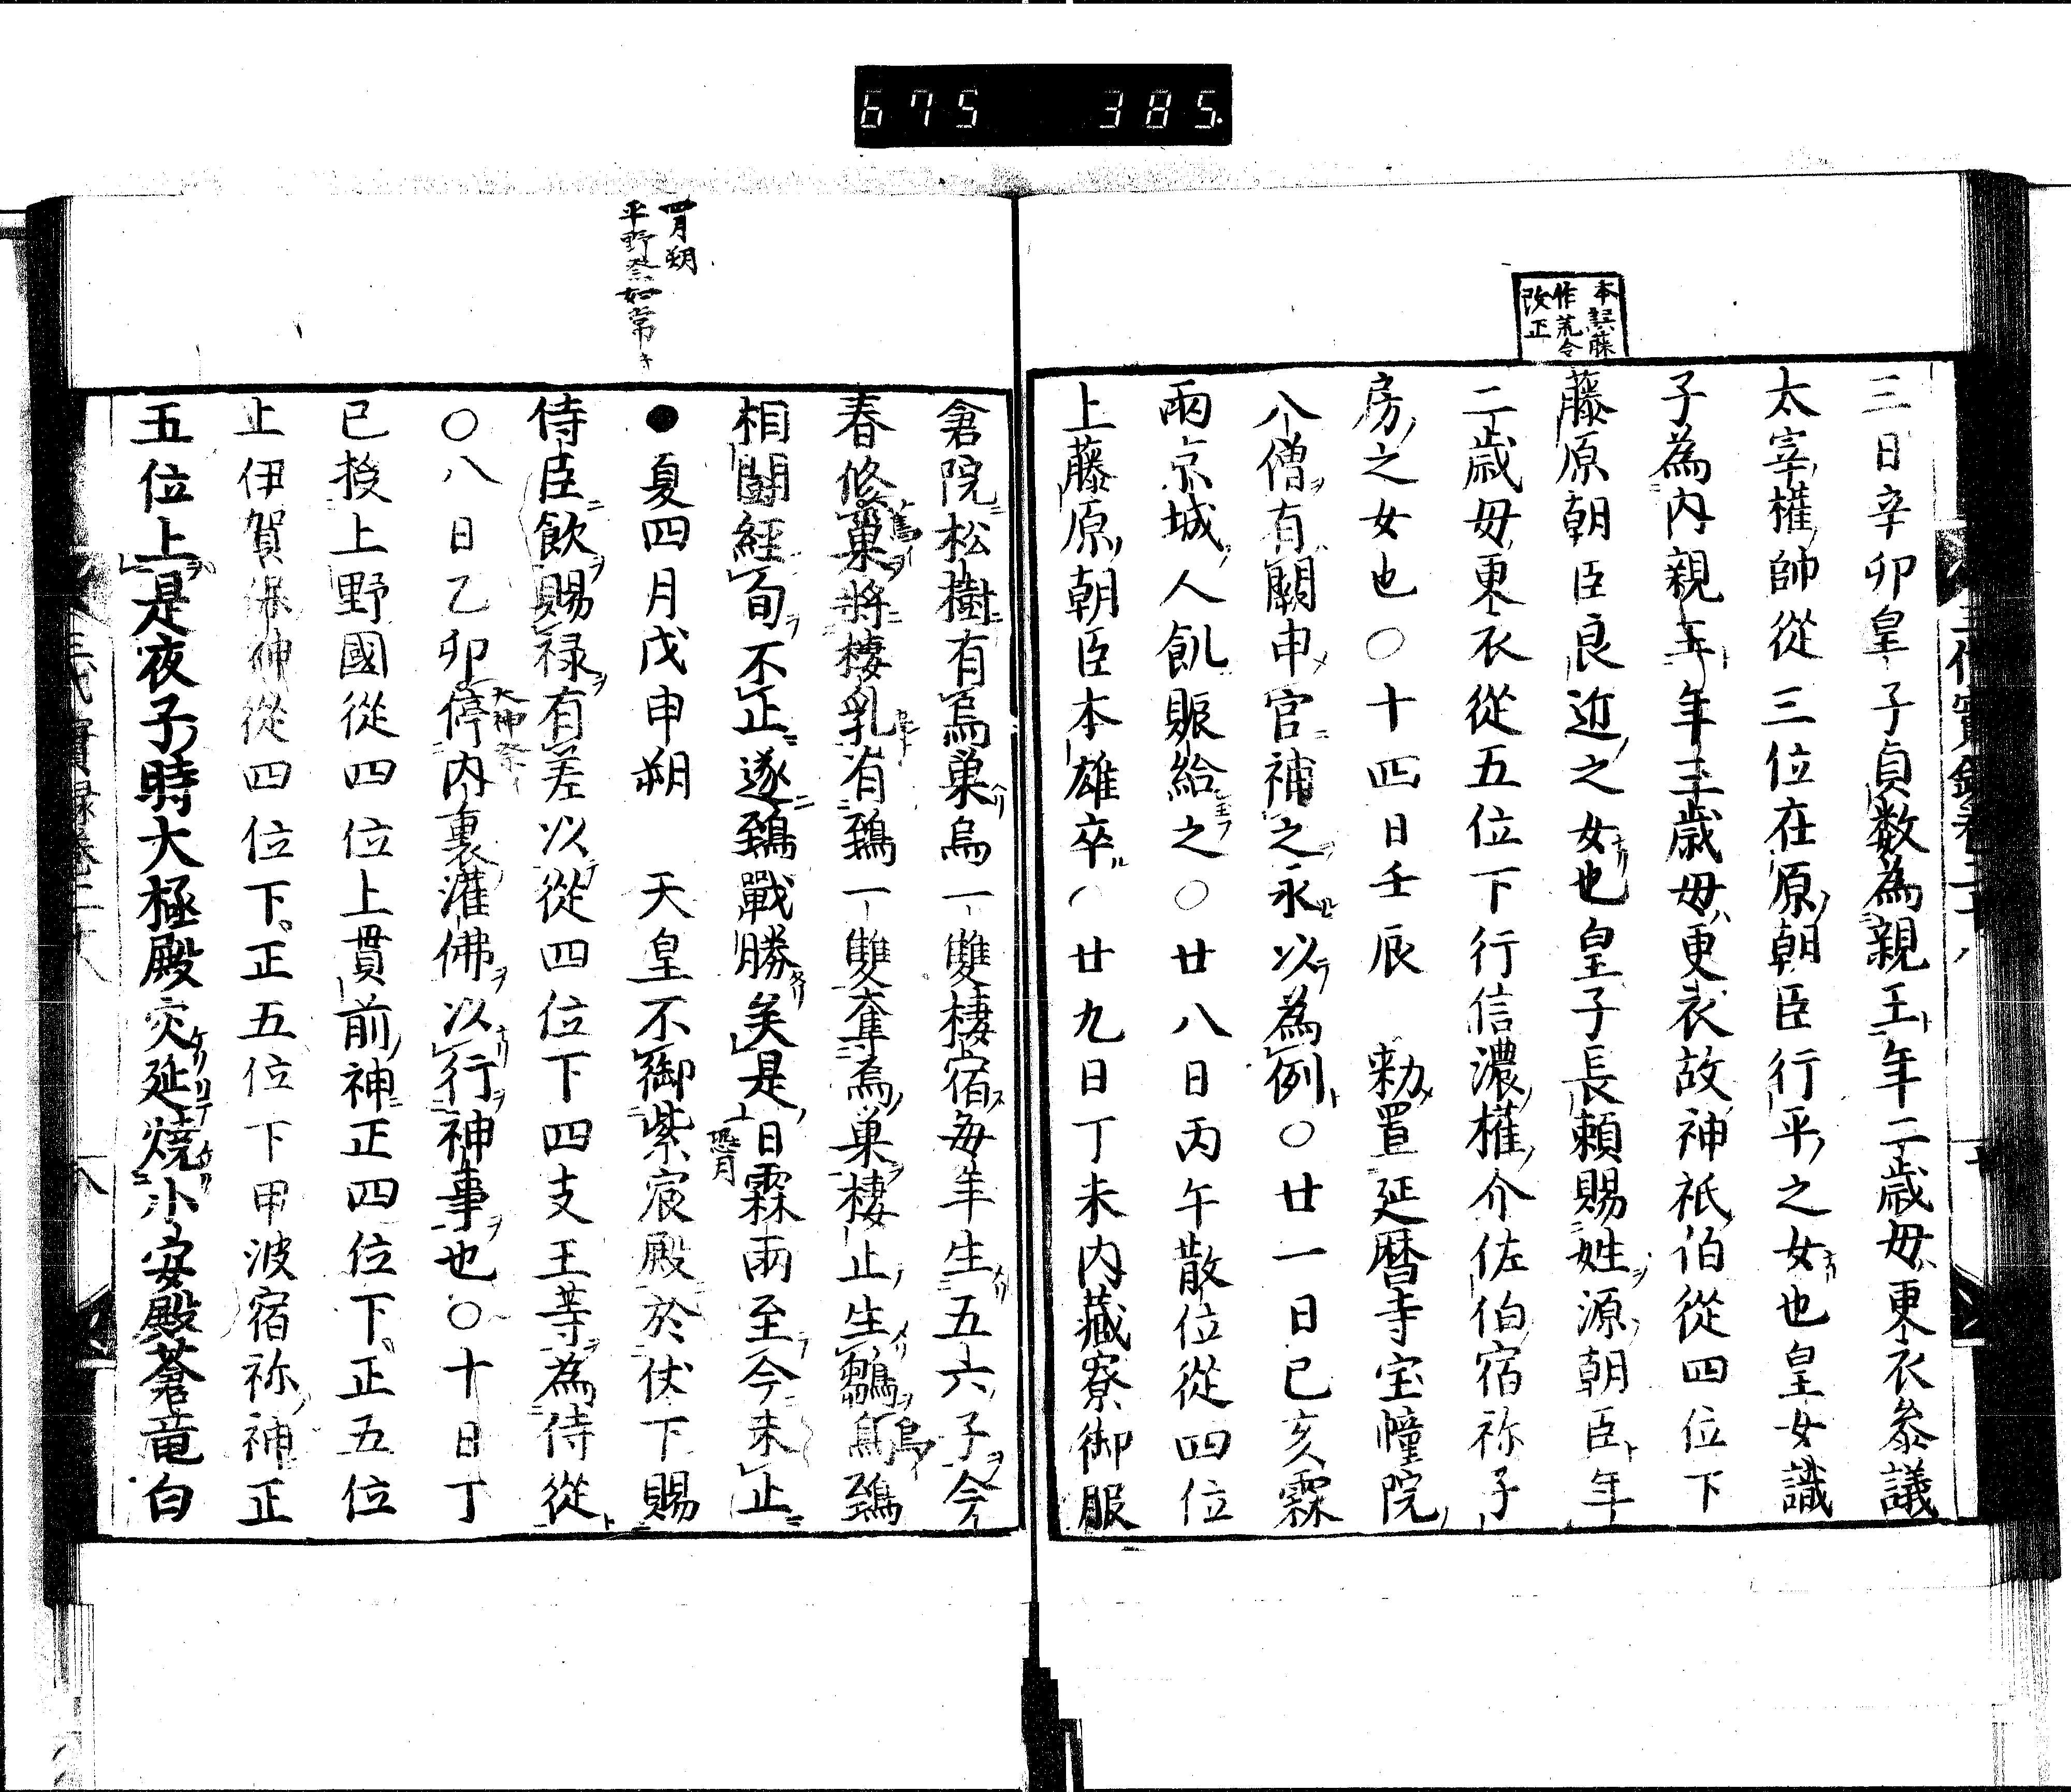 675 385.
本誤藤
作荒今
改正
三日辛卯皇子貞数為親王年二歳毋更衣参議
太宰権帥従三位在原朝臣行平之女也皇女識
子為内親王年三歳毋更衣故神祇伯従四位下
藤原朝臣良近之女也皇子長頼賜姓源朝臣年
二歳毋更衣従五位下行信濃権介佐伯宿祢子
房之女也〇十四日壬辰　勅置延暦寺宝幢院
八僧有闕申官補之永以為例〇廿一日己亥霖
兩京城人飢賑給之〇廿八日丙午散位従四位
上藤原朝臣本雄卒〇廿九日丁未内藏寮御服
四月朔
平野祭如常
倉院松樹有烏巣烏一雙棲宿毎年生五六子今
春修巣将棲乳有鵄一雙奪烏巣棲止生鶵烏鵄
相闘経旬不止遂鵄戰勝矣是日霖雨至今未止
恐月
●夏四月戊申朔　天皇不御紫宸殿於仗下賜
侍臣飲賜禄有差以従四位下四支王等為侍従
〇八日乙卯停内裏灌佛以行神事也〇十日丁
大神祭
巳授上野國従四位上貫前神正四位下正五位
止伊賀保神従四位下正五位下甲波宿祢神正
五位上是夜子時大極殿灾延焼小安殿蒼竜白